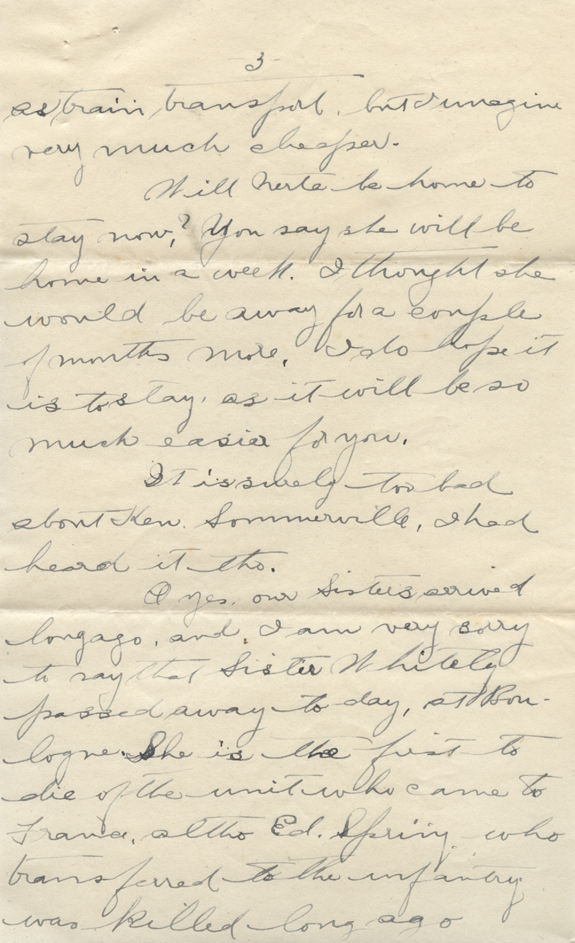 3
as train transport, but I imagine
very much cheaper.
Will Nerta be home to
stay now? You say she will be
home in a week. I thought she
would be away for a couple
of months more, I do hope it
is to stay, as it will be so
much easier for you.
It is surely too bad
about Ken. Sommerville, I had
heard it tho.
O yes, our Sisters arrived
long ago, and I am very sorry
to say that Sister Whitely
passed away to-day, at Bou-
logne. She is the first to
die of the unit who came to
France, altho Ed. Spring who
transferred to the infantry
was killed long ago